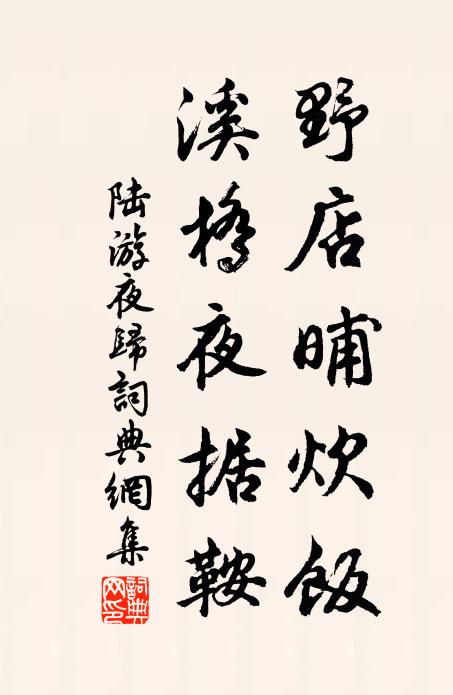 野店晡炊飯
溪橋夜据鞍
陆游夜歸詞典網集
詞典網印